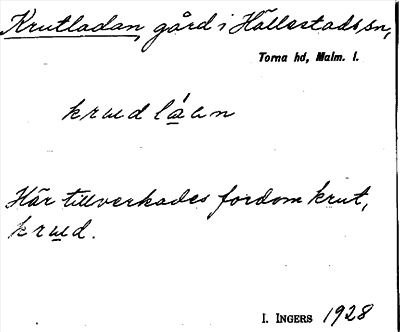 Krutladan, gård i Hällestads sn,
Torna hd, Malm. l.
krud láan
Här tillverkades fordom krut,
krud.
I. INGERS 1928